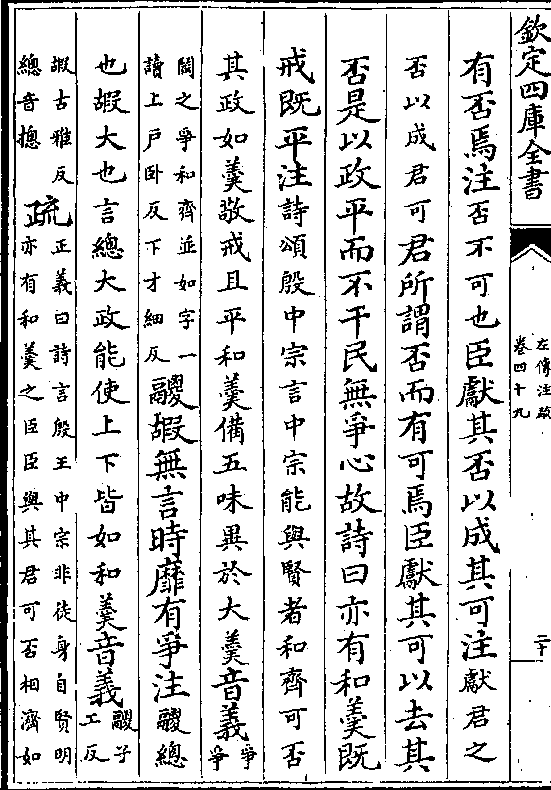 欽定四庫全書
左傳注疏
卷四十九
二十
有否焉注否不可也臣獻其否以成其可注獻君之
否以成君可君所謂否而有可焉臣獻其可以去其
否是以政平而不干民無爭心故詩曰亦有和羹既
戒既平注詩頌殷中宗言中宗能與賢者和齊可否
其政如羹敬戒且平和羹備五味異於大羹音義爭
爭
闘之爭和齊並如字一
讀上戶卧反下才細反
鬷嘏無言時靡有爭注鬷總
也嘏大也言總大政能使上下皆如和羹音義鬷子
工反
嘏古雅反
總音揔
疏
正義曰詩言殷王中宗非徒身自賢明
亦有和羹之臣臣與其君可否相濟如